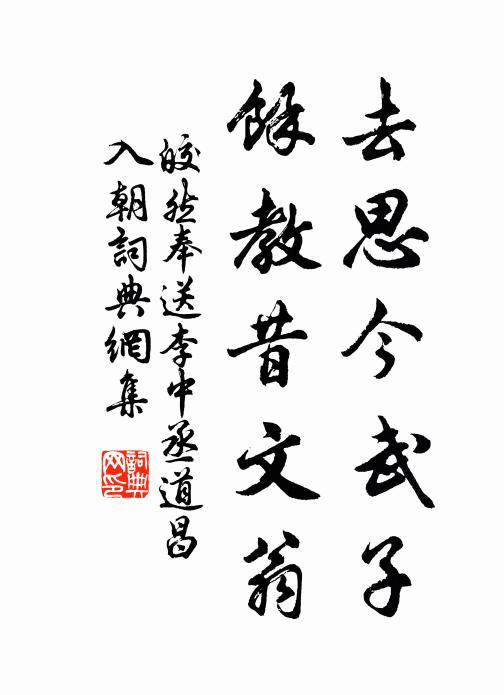 去思今武子
餘教昔文翁
皎然奉送李中丞道昌
入朝詞典網集
詞典網印